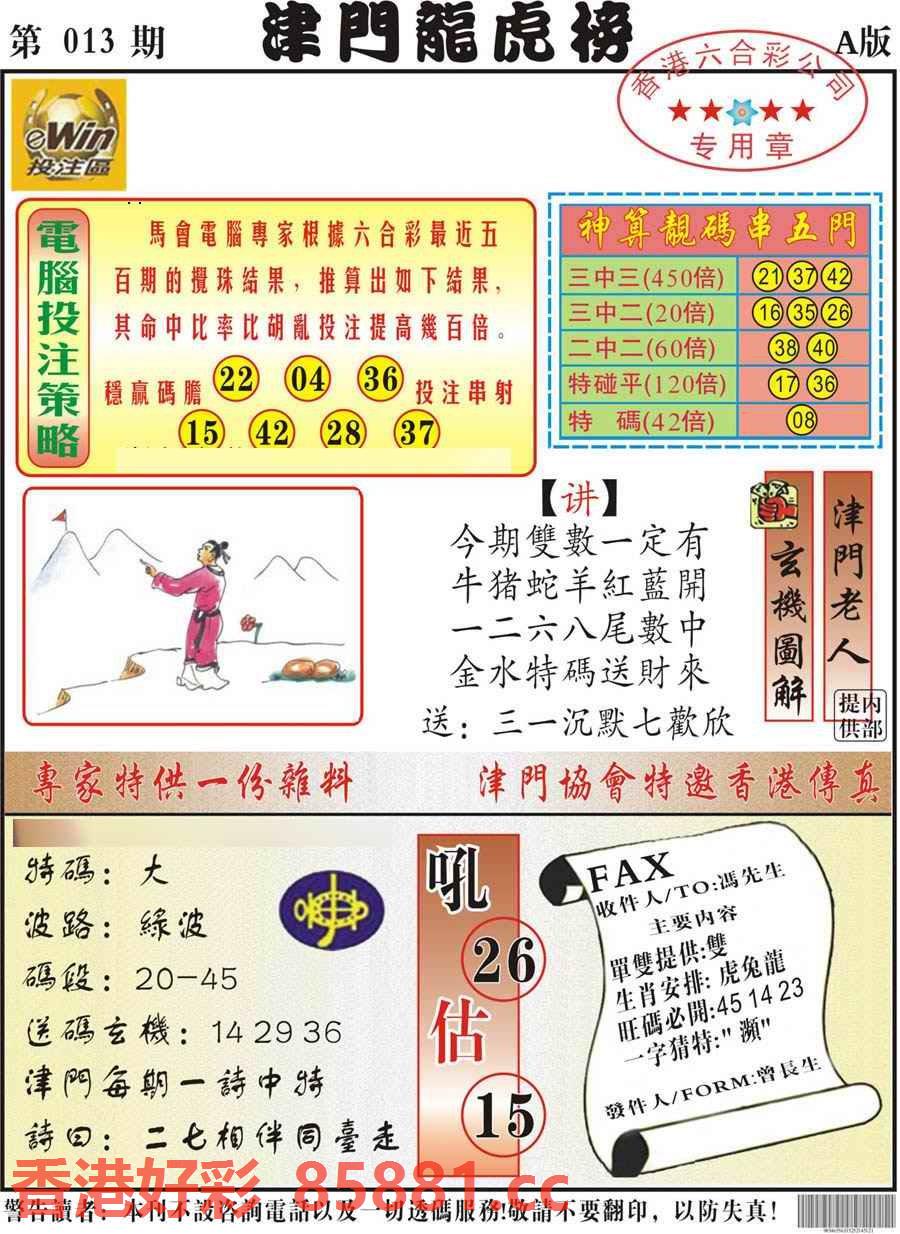 第 013 期
津門龍虎榜
A版
香港六合彩公司
专用章
eWin
投注區
電腦投注策略
馬會電腦專家根據六合彩最近五
百期的攪珠結果，推算出如下結果，
其命中比率比胡亂投注提高幾百倍。
穩贏碼膽 22 04 36 投注串射
15 42 28 37
神算靚碼串五門
三中三(450倍) 21 37 42
三中二(20倍) 16 35 26
二中二(60倍) 38 40
特碰平(120倍) 17 36
特 碼(42倍) 08
【讲】
今期雙數一定有
牛猪蛇羊紅藍開
一二六八尾數中
金水特碼送財來
送：三一沉默七歡欣
玄機圖解
津門老人
提供
内部
專家特供一份雜料
津門協會特邀香港傳真
特碼：大
波路：綠波
碼段：20—45
送碼玄機：14 29 36
津門每期一詩中特
詩曰：二七相伴同臺走
吼
26
估
15
FAX
收件人/TO:馮先生
主要内容
單雙提供:雙
生肖安排:虎兔龍
旺碼必開:45 14 23
一字猜特:"瀕"
發件人/FORM:曾長生
香港好彩 85881.cc
警告讀者：本刊不設咨詢電話以及一切透碼服務!敬請不要翻印，以防失真!